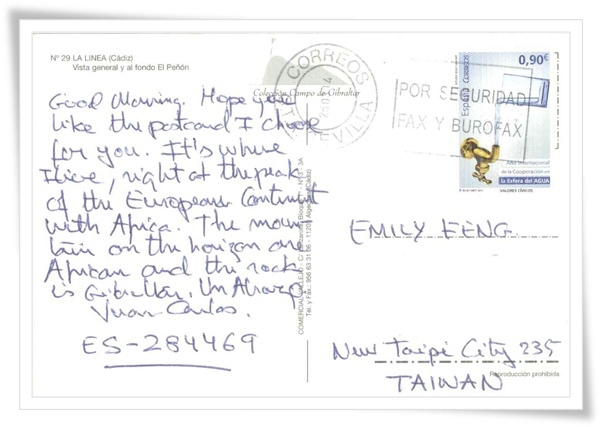 Nº 29 LA LINEA (Cádiz)
Vista general y al fondo El Peñón
Colección Campo de Gibraltar
Good Morning. Hope you
like the postcard I choose
for you. It's where
I live, right at the peak
of the European Continent
with Africa. The moun
tain on the horizon are
African and the rock
is Gibraltar. Un Abrazo
Juan Carlos.
ES-284469
COMERCIAL
CORREOS
SEVILLA
POR SEGURIDAD
FAX Y BUROFAX
0,90€
España Correos
Año Internacional
de la Cooperación en
la Esfera del AGUA
VALORES CÍVICOS
EMILY FENG
New Taipé City 235
TAIWAN
Reproducción prohibida